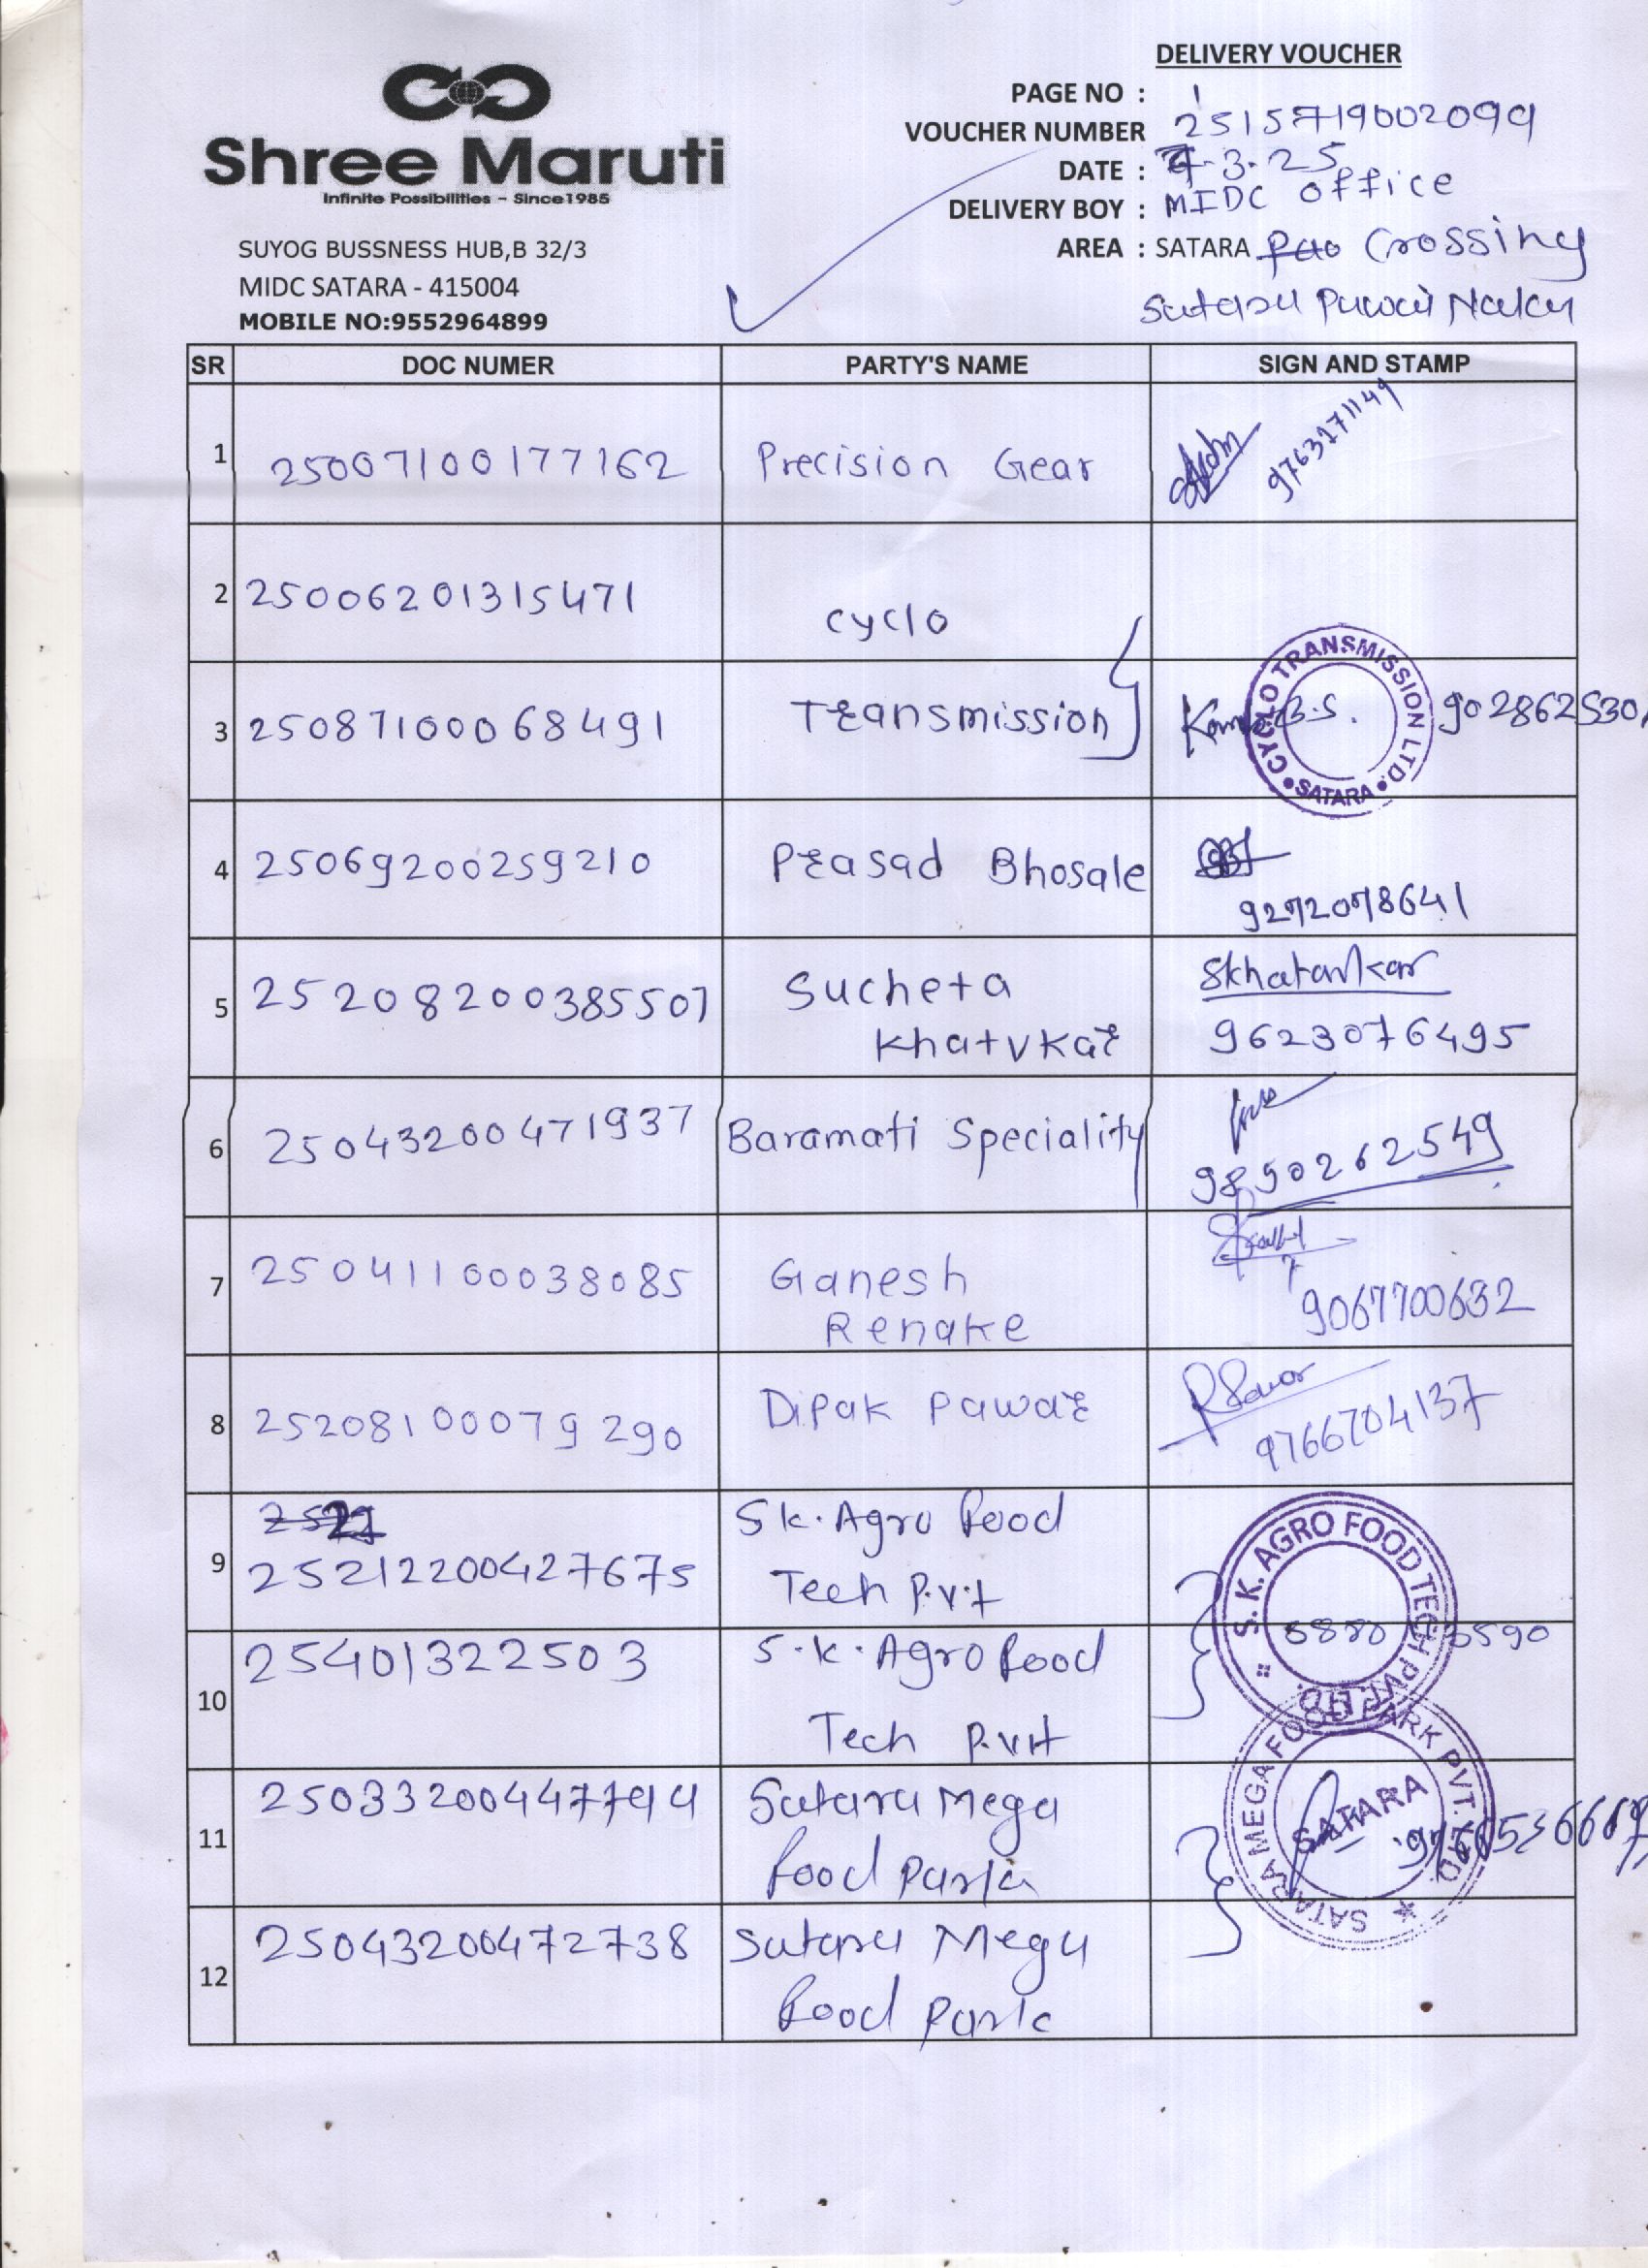 DELIVERY VOUCHER
Shree Maruti
Infinite Possibilities - Since1985
SUYOG BUSSNESS HUB,B 32/3
MIDC SATARA - 415004
MOBILE NO:9552964899
PAGE NO : 1
VOUCHER NUMBER 2515719002099
DATE : 7.3.25
DELIVERY BOY : MIDC office
AREA : SATARA Crossing
Satara Naka
SR DOC NUMER PARTY'S NAME SIGN AND STAMP
1 25007100177162 Precision Gear 9763171149
2 25006201315471 cyclo
3 25087100068491 Transmission 902862530
CYCLO TRANSMISSION LTD. SATARA
4 25069200259210 Prasad Bhosale
9272078641
5 25208200385507 Sucheta Skhatavkar
Khatvkar 9623076495
6 25043200471937 Baramati Speciality
9890262549
7 25041100038085 Ganesh
Renake 9067700632
8 25208100079290 Dipak Pawar
9766704137
9 25212200427675 S k. Agro Food
Tech P.v.t
S. K. AGRO FOOD TECH PVT. LTD.
10 25401322503 S.k. Agro Food
Tech P.vt
11 25033200447794 Satara Mega
Food Park
SATARA MEGA FOOD PARK PVT. LTD.
SATARA
12 25043200472738 Satara Mega
Food Park